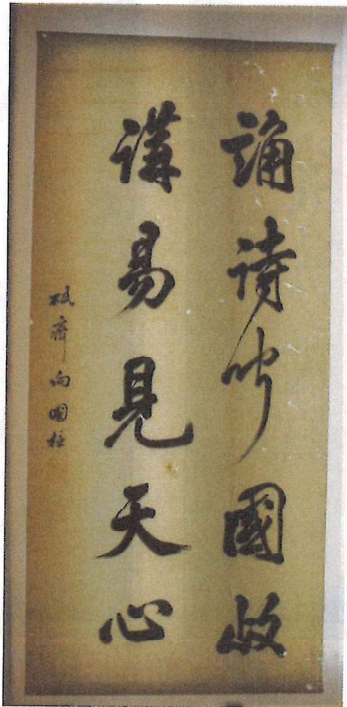 誦詩聞國政
講易見天心
栻齋向國柱